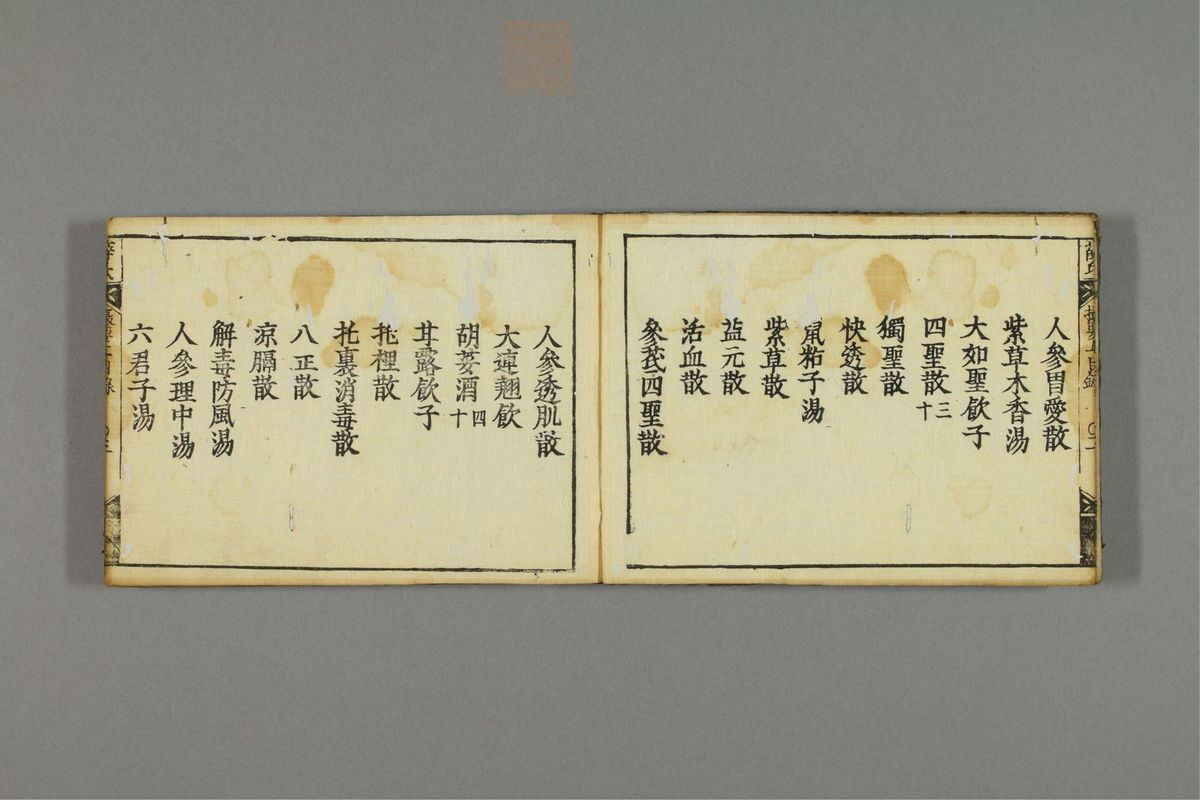 人參胃愛散
紫草木香湯
大如聖飲子
四聖散 三十
獨聖散
快透散
鼠粘子湯
紫草散
益元散
活血散
參芪四聖散
人參透肌散
大連翹飲
胡荽酒 四十
甘露飲子
托裡散
托裏消毒散
八正散
涼膈散
解毒防風湯
人參理中湯
六君子湯